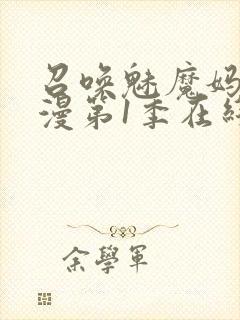 召唤魅魔妈
漫第1季在终
余學軍